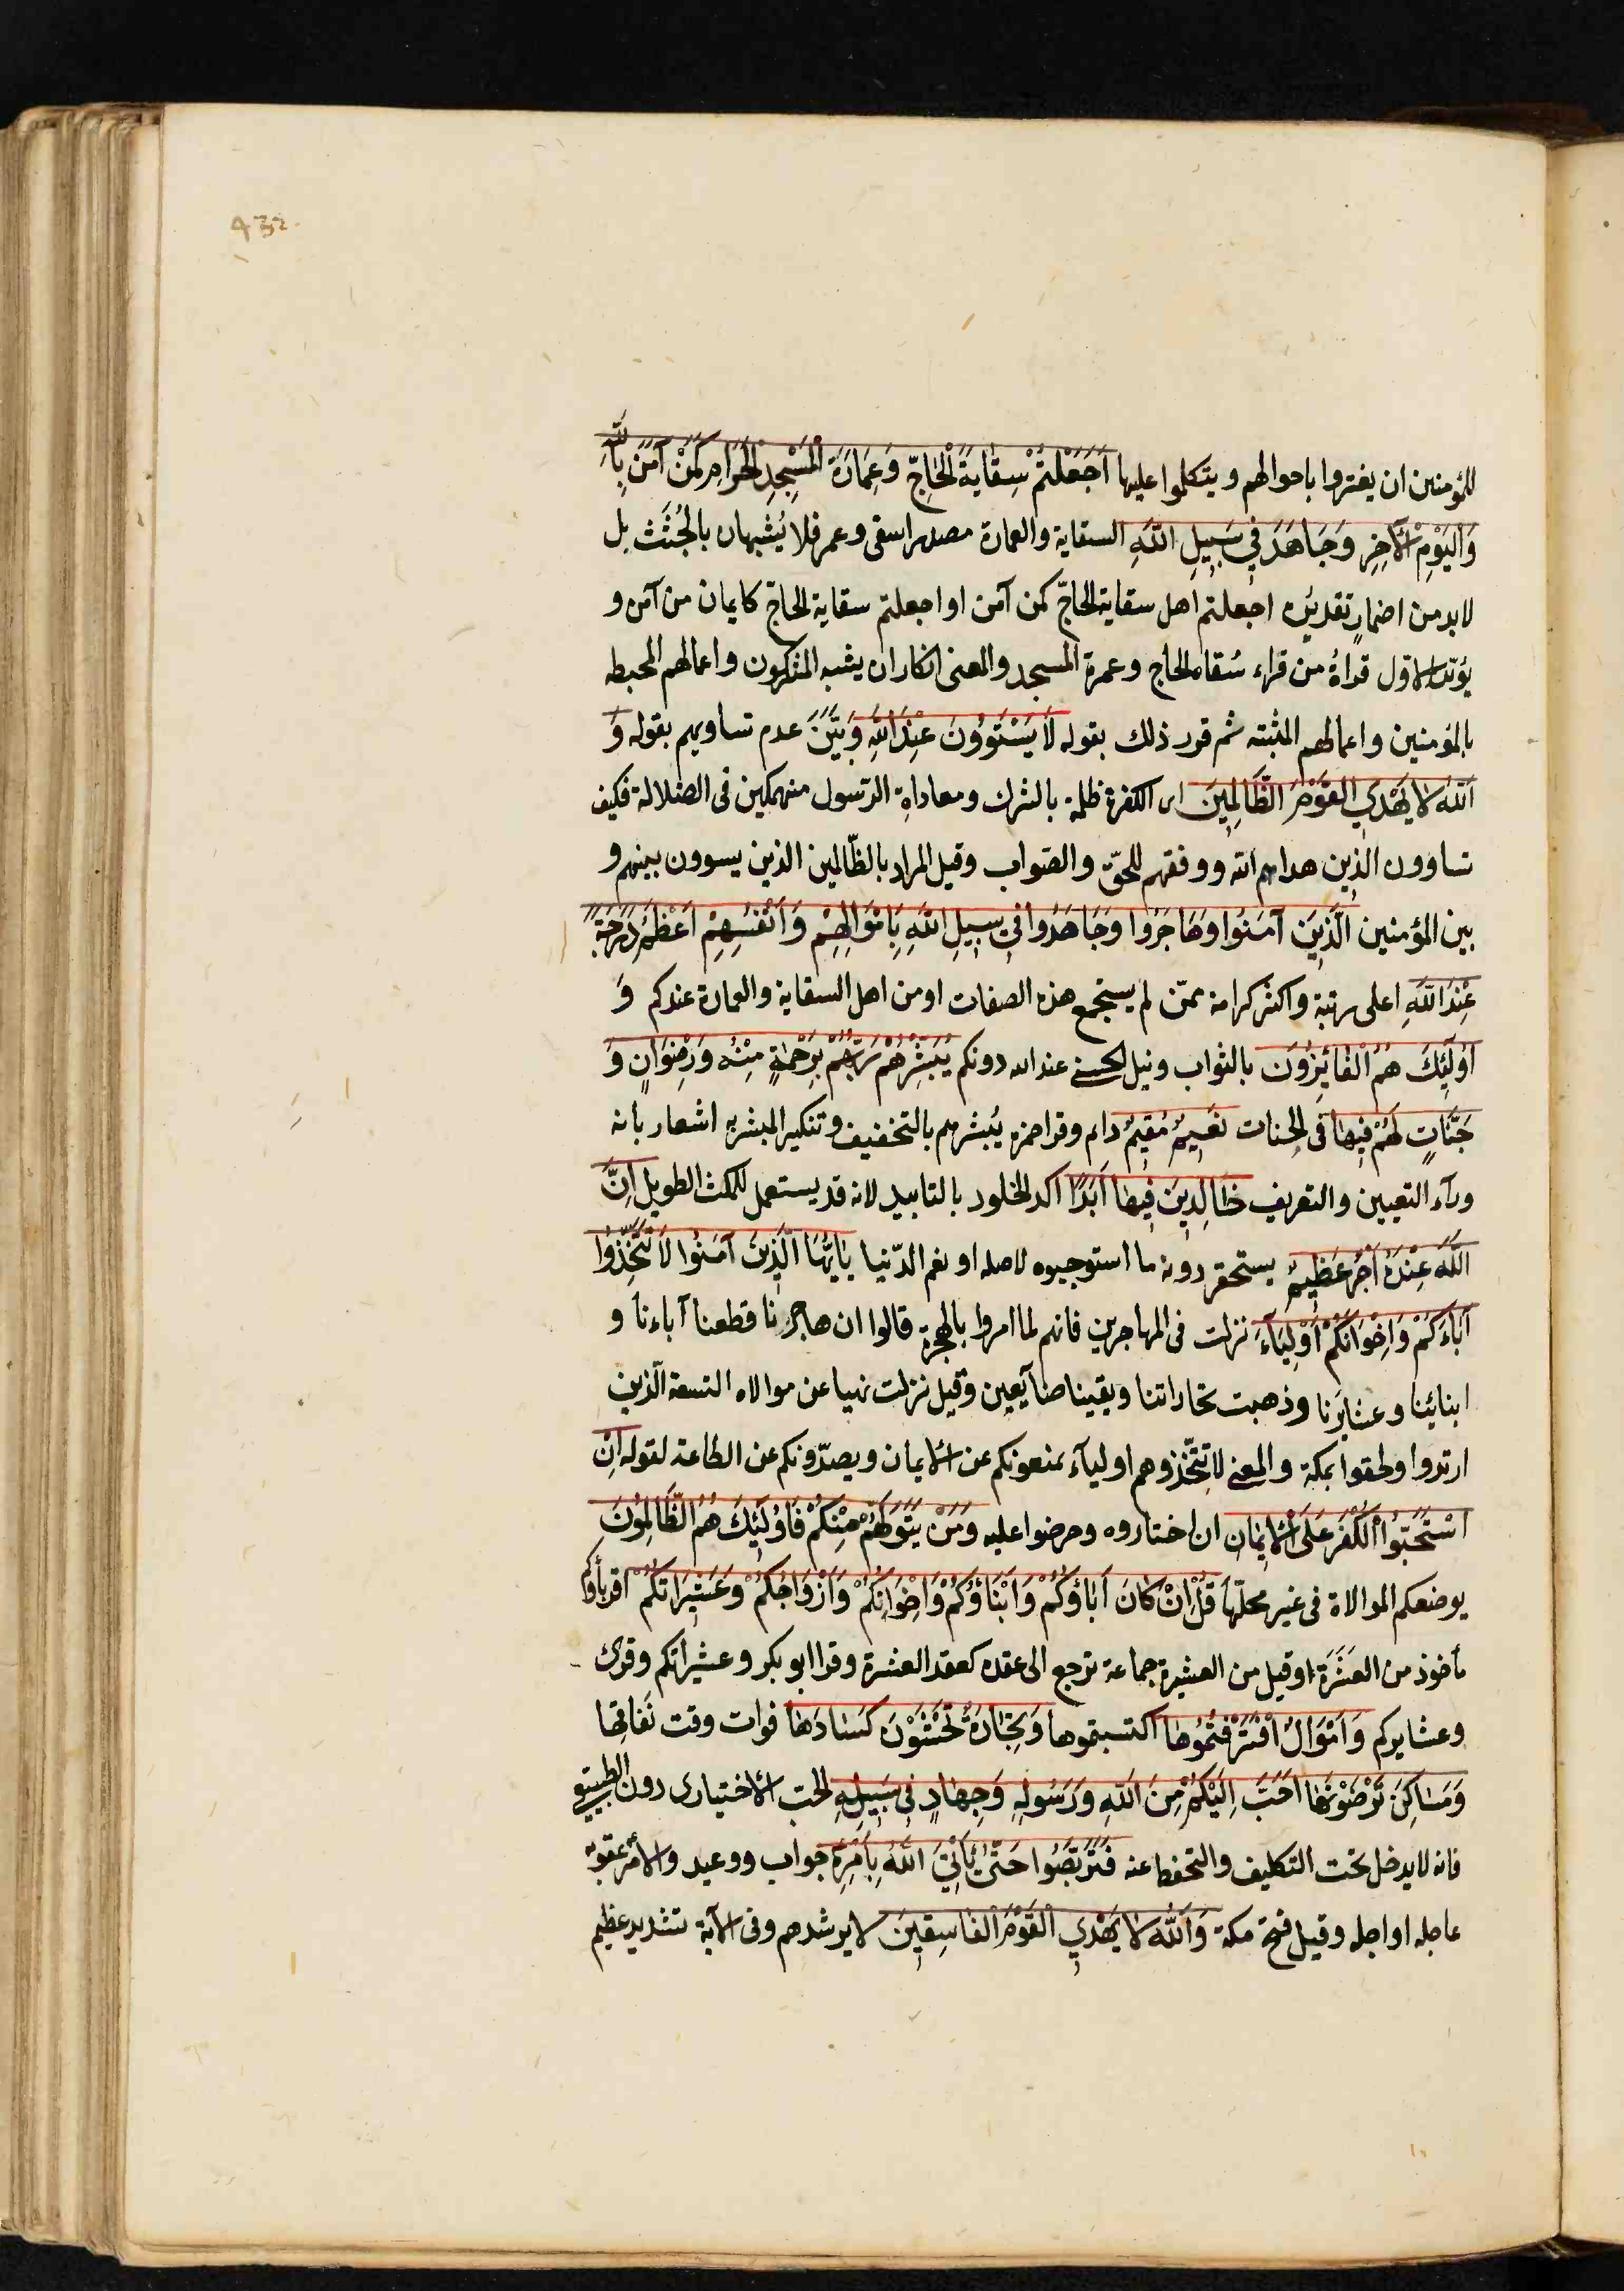 432
للمؤمنين ان يغتروا باحوالهم ويتكلموا عليها اَجَعَلْتُمْ سِقٰايَةَ الْحٰاجِّ وَعِمٰارَةَ الْمَسْجِدِ الْحَرٰامِ كَمَنْ آمَنَ بِاللّٰهِ
وَالْيَوْمِ الْآخِرِ وَجَاهَدَ فِي سَبِيلِ اللّٰهِ السقاية والعمارة مصدرا سقى وعمر فلا يُشْبهان بالجُثَث بل
لابد من اضمارٍ تقديره اجعلتم اهل سقاية الحاجّ كمن آمن او اجعلتم سقاية الحاجّ كايمان من آمن و
يُؤيّد الاوّل قراةُ من قراء سُقاه الحاج وعمرة المسجد والمعنى انكار ان يشبه المشركون واعمالهم المحبطه
بالمؤمنين واعمالهم المثبته ثم قرر ذلك بقوله لٰا يَسْتَوُونَ عِنْدَ اللّٰهِ وَبَيَّنَ عدم تساويهم بقوله وَ
اَللّٰهُ لٰا يَهْدِي الْقَوْمَ الظّٰالِمِينَ اى الكفرة ظلمة بالشرك ومعاداةِ الرّسول منهمكين فى الضلالة فكيف
تساوون الذين هداهم الله ووفقهم للحقّ والصّواب وقيل المراد بالظّالمين الذين يسوون بينهم و
بين المؤمنين اَلَّذِينَ آمَنُوا وَهٰاجَرُوا وَجٰاهَدُوا فِي سَبِيلِ اللّٰهِ بِاَمْوٰالِهِمْ وَاَنْفُسِهِمْ اَعْظَمُ دَرَجَةً
عِنْدَ اللّٰهِ اعلى رتبة واكثر كرامة ممّن لم يستجمع هذه الصفات او من اهل السقاية والعمارة عندكم وَ
اُولٰئِكَ هُمُ الْفٰائِزُونَ بالثواب ونيل الحسنى عند الله دونكم يُبَشِّرُهُمْ رَبُّهُمْ بِرَحْمَةٍ مِنْهُ وَرِضْوٰانٍ وَ
جَنّٰاتٍ لَهُمْ فِيهٰا فى الجنات نَعِيمٌ مُقِيمٌ دام وقرا حمزه يُبشرهم بالتخفيف وتنكير المبشر به اشعار بانه
ورآء التعيين والتعريف خٰالِدِينَ فِيهٰا اَبَدًا اكد الخلود بالتابيد لانه قد يستعمل للمكث الطويل اِنَّ
اللّٰهَ عِنْدَهُ اَجْرٌ عَظِيمٌ يستحقر دونه ما استوجبوه لاجله او نعم الدّنيا يٰا اَيُّهَا الَّذِينَ آمَنُوا لٰا تَتَّخِذُوا
آبٰاءَكُمْ وَاِخْوٰانَكُمْ اَوْلِيٰآءَ نزلت فى المهاجرين فانهم لما امروا بالهجرة قالوا ان هاجرنا قطعنا آباءنا و
ابنائنا وعشايرنا وذهبت تجاراتنا وبقينا ضايعين وقيل نزلت نهيا عن موالاه التسعة الّذين
ارتدوا ولحقوا بمكة والمعنى لا تتّخذوهم اوليآء يمنعونكم عن الايمان ويصدّونكم عن الطاعة لقوله اِنْ
اسْتَحَبُّوا الْكُفْرَ عَلَى الْاِيمٰانِ ان اختاروه وحرضوا عليه وَمَنْ يَتَوَلَّهُمْ مِنْكُمْ فَاُولٰئِكَ هُمُ الظّٰالِمُونَ
بوضعكم الموالاة فى غير محلّها قُلْ اِنْ كٰانَ آبٰاؤُكُمْ وَاَبْنٰاؤُكُمْ وَاِخْوٰانُكُمْ وَاَزْوٰاجُكُمْ وَعَشِيرَاتُكُمْ اقرباؤكم
مأخوذ من العَشَرَة او قيل من العشيرة جماعة ترجع الى عقده كعقد العشرة وقرا ابو بكر وعشيراتكم وقرى
وعشايركم وَاَمْوٰالٌ اقْتَرَفْتُمُوهٰا اكتسبتموها وَتِجٰارَةٌ تَخْشَوْنَ كَسٰادَهٰا فوات وقت نَفاقها
وَمَسٰاكِنَ تَرْضَوْنَهٰا اَحَبَّ اِلَيْكُمْ مِنَ اللّٰهِ وَرَسُولِهِ وَجِهٰادٍ فِي سَبِيلِهِ الحب الاختيارى دون الطبيعى
فانه لا يدخل تحت التكليف والتحفظ عنه فَتَرَبَّصُوا حَتّٰى يَأْتِيَ اللّٰهُ بِاَمْرِهِ جواب ووعيد والأمر عقوبة
عاجله او اجله وقيل فتح مكة وَاللّٰهُ لٰا يَهْدِي الْقَوْمَ الْفٰاسِقِينَ لا يرشدهم وفى الآية تشديد عظيم